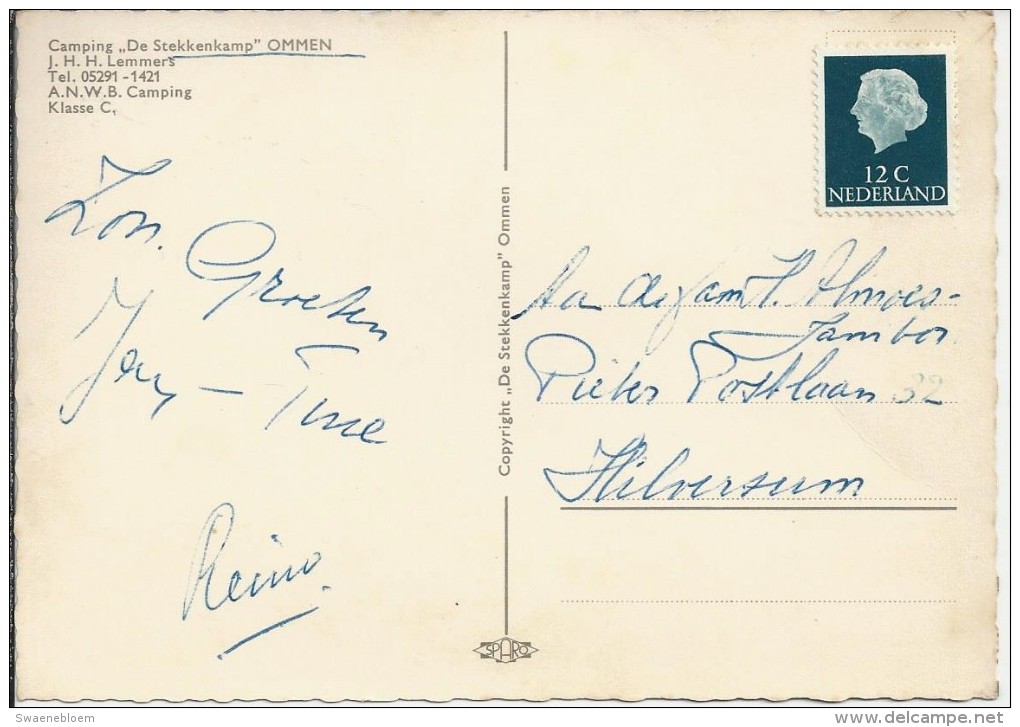 Camping „De Stekkenkamp” OMMEN
J. H. H. Lemmers
Tel. 05291-1421
A.N.W.B. Camping
Klasse C,
Groeten
Tine
Reino.
Copyright „De Stekkenkamp” Ommen
SPARO
12 C
NEDERLAND
Aan de fam. H.
Pieter Postlaan 32
Hilversum
Swaenebloem
delcampe.net